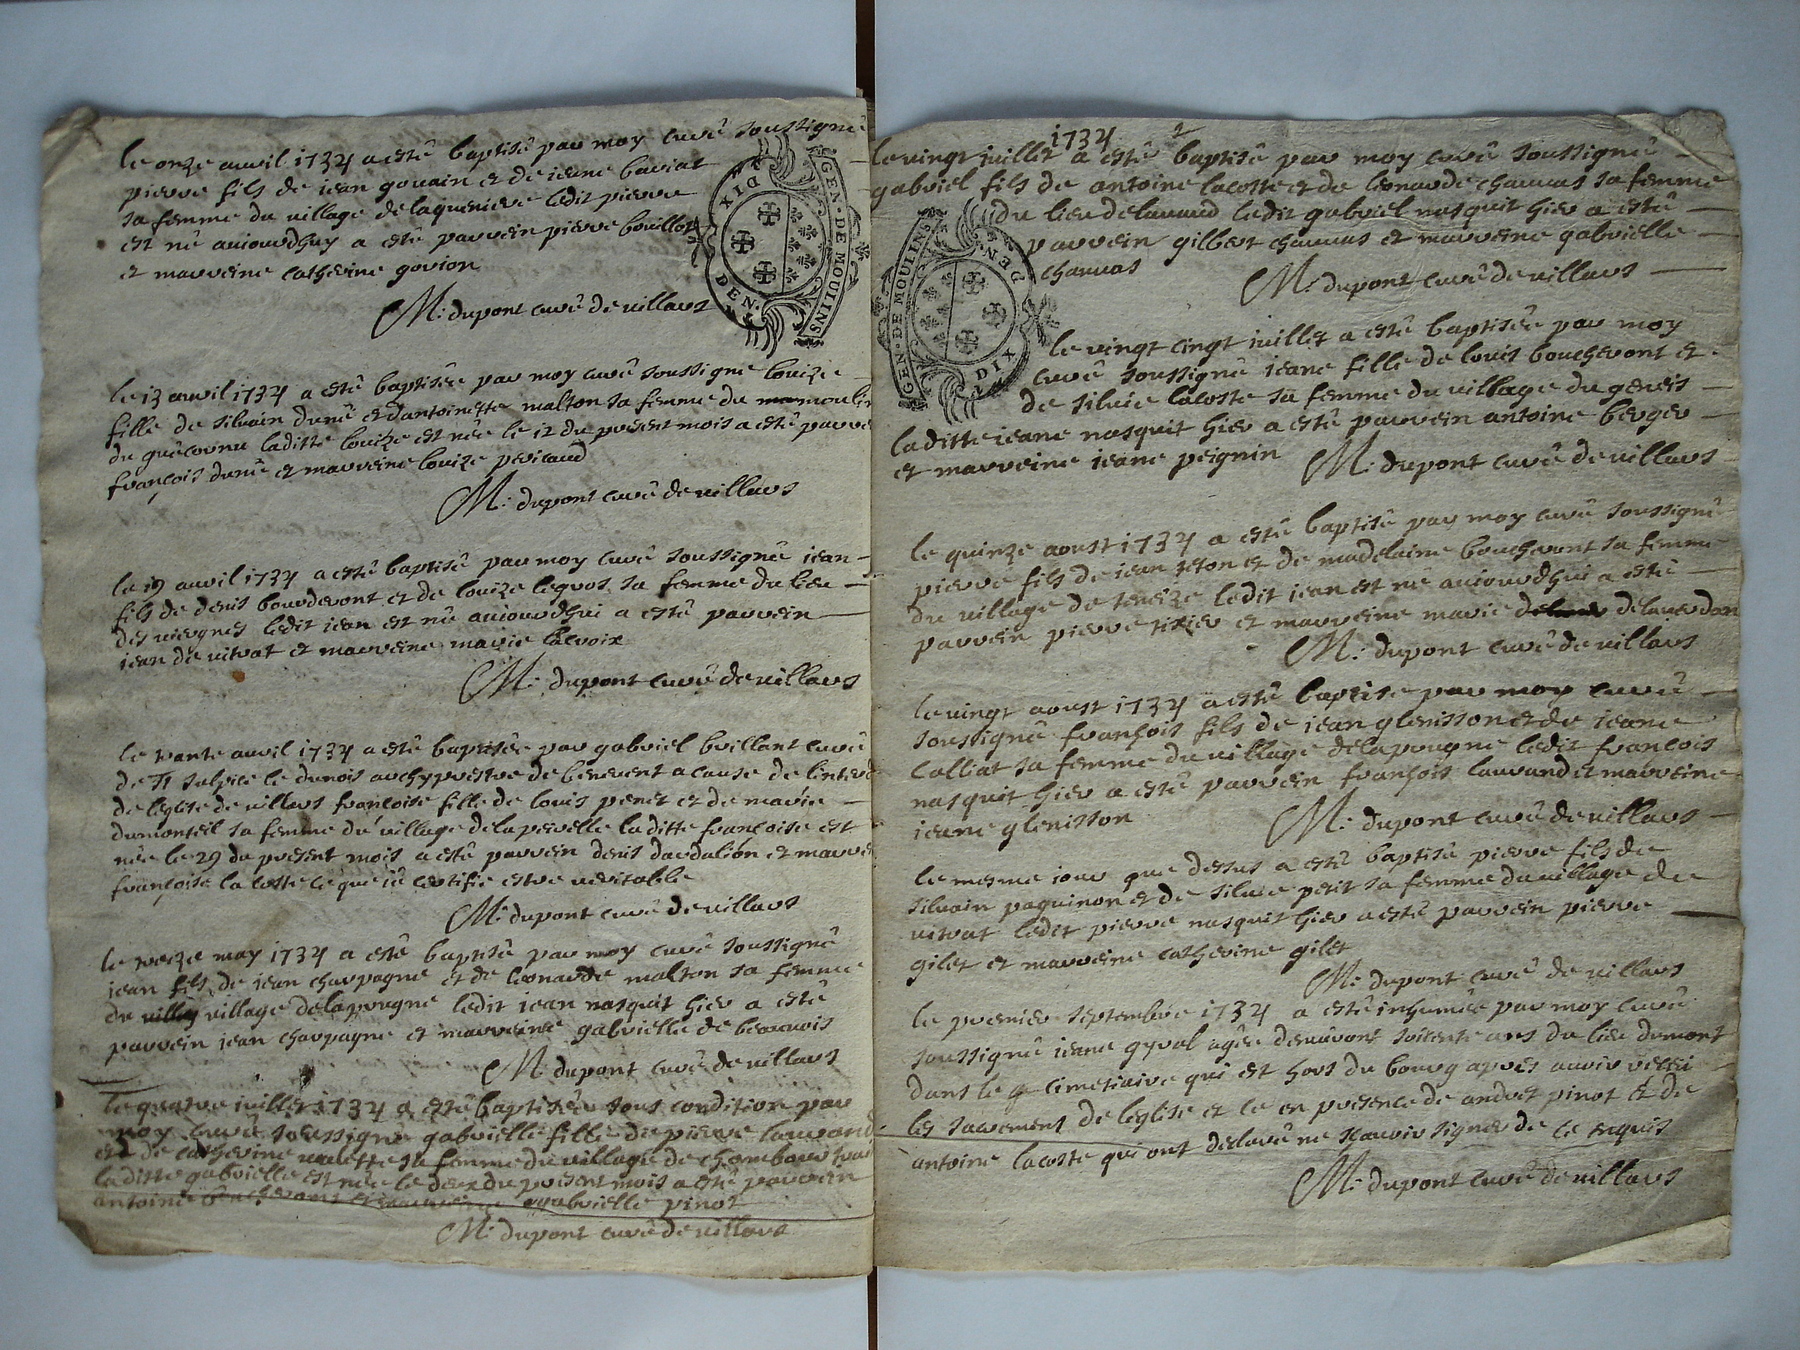 le onze auvil 1734 a esté baptisé par moy curé soussigné
pierre fils de iean gouain et de ieane baviat
sa femme du village delaqueriere ledit pierre
est né auiourdhuy a esté parrein pierre bouillot
et marreine catherine gorion
M: dupont curé de villars
GEN · DE MOULINS
DIX DEN.
le 13 auvil 1734 a esté baptisée par moy curé soussigné louize
fille de silvain duné et dantoinette malton sa femme du moulin
du guécornu laditte louize est née le 12 du present mois a esté parre
françois duné et marreine louize pericaud
M: dupont curé de villars
le 19 auvil 1734 a esté baptisé par moy curé soussigné iean
fils de denis bourderont et de louize legros sa femme du lieu
des viergnes ledit iean est né auiourdhui a esté parrein
iean de vitrat et marreine marie lacroix
M: dupont curé de villars
le trante auvil 1734 a esté baptisée par gabriel brillant curé
de st sulpice le dunois archyprestre de benevent a cause de linterd
de leglise de villars françoise fille de louis penet et de marie
dumonteil sa femme du village delapeirelle laditte françoise est
née le 29 du present mois a esté parrein denis dardalion et marre
françoise la coste ce que ie certifie estre veritable
M: dupont curé de villars
le treize may 1734 a esté baptisé par moy curé soussigné
iean fils de iean charpagne et de leonarde malton sa femme
du village delapougne ledit iean nasquit hier a esté
parrein iean charpagne et marreine gabrielle de beauvais
M: dupont curé de villars
le quatre iuillet 1734 a esté baptisée sous condition par
moy curé soussigné gabrielle fille de pierre laurand
et de catherine sa femme du village de
laditte gabrielle est née le deux du present mois a esté parrein
antoine et marreine gabrielle pinot
M: dupont curé de villars
1734 2
le vingt iuillet a esté baptisé par moy curé soussigné
gabriel fils de antoine lacoste et de leonarde charras sa femme
du lieu delavaud ledit gabriel nasquit hier a esté
parrein gilbert charras et marreine gabrielle
charras
M: dupont curé de villars
GEN · DE MOULINS
DIX DEN.
le vingt cinqt iuillet a esté baptisée par moy
curé soussigné ieane fille de louis boucheront et
de silvie lacoste sa femme du village du geneis
laditte ieane nasquit hier a esté parrein antoine berger
et marreine ieane peignin
M: dupont curé de villars
le quinze aoust 1734 a esté baptisé par moy curé soussigné
pierre fils de iean teton et de madelaine boucheront sa femme
du village de teneize ledit iean est né auiourdhui a esté
parrein pierre tixier et marreine marie delaverdan
M: dupont curé de villars
le vingt aoust 1734 a esté baptisé par moy curé
soussigné françois fils de iean glenisson et de ieane
calliat sa femme du village delapougne ledit françois
nasquit hier a esté parrein françois laurand et marreine
ieane glenisson
M: dupont curé de villars
le mesme iour que dessus a esté baptisé pierre fils de
silvain paquinon et de silvie petit sa femme du village de
vitrat ledit pierre nasquit hier a esté parrein pierre
gilet et marreine catherine gilet
M: dupont curé de villars
le premier septembre 1734 a esté inhumée par moy curé
soussigné ieane gyval agée denviront soisente ans du lieu dumont
dans le cimetiaire qui est hors du bourg apres avoir reccu
les sacrement de leglise et ce en presence de andret pinot et de
antoine lacoste qui ont declaré ne scavoir signer de ce enquis
M: dupont curé de villars